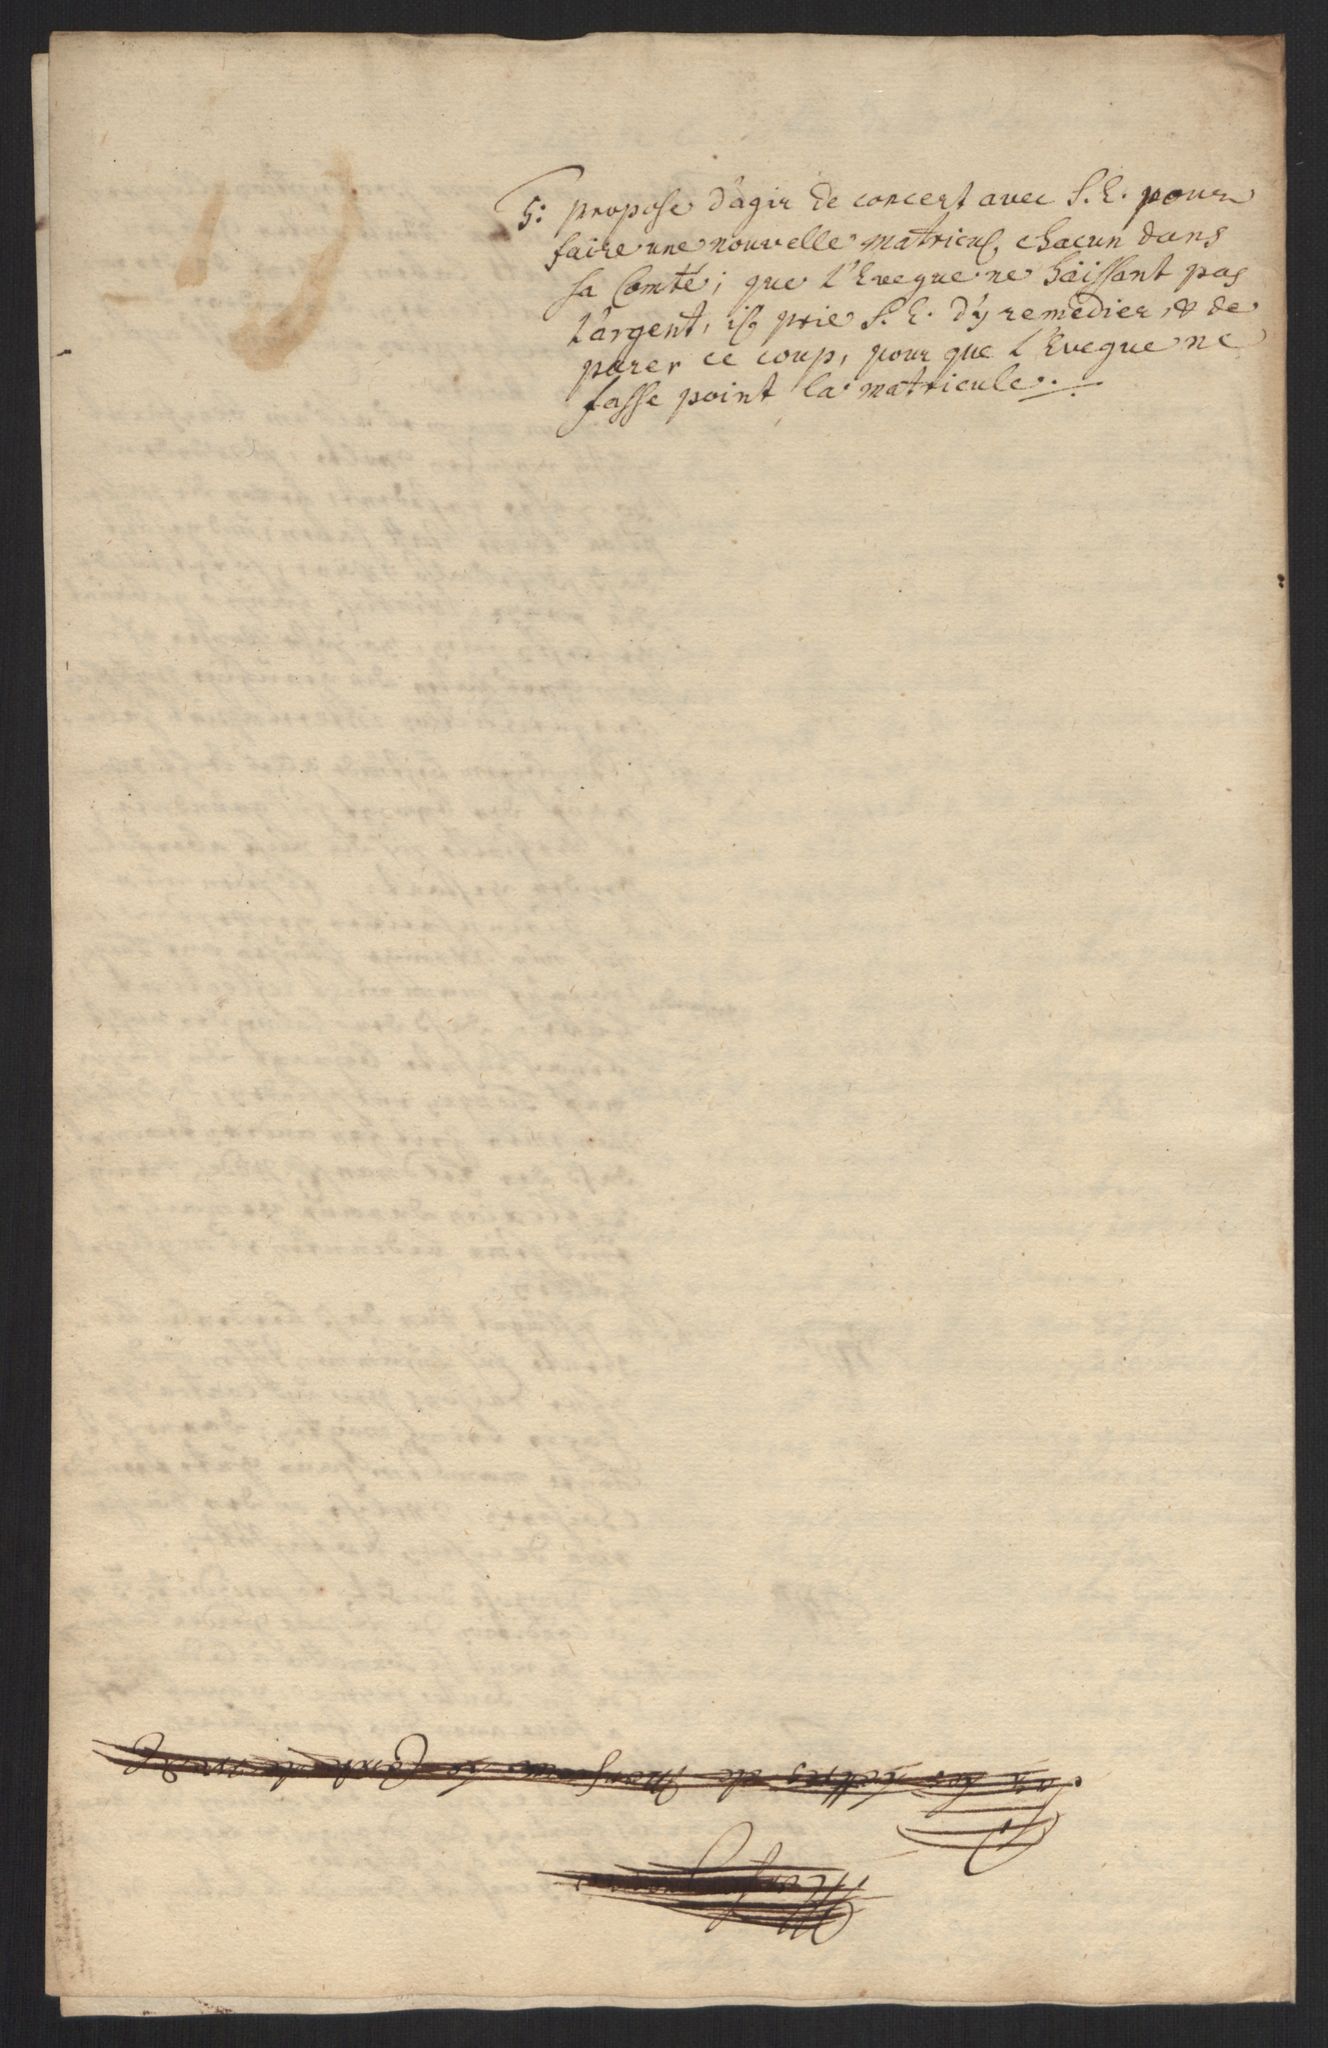 5: propose d'agir de concert avec S. E. pour
faire une nouvelle matricul, chacun dans
sa Comté; que l'Eveque ne haissant pas
l'argent, il prie S. E. d'y remedier, & de
parer ce coup, pour que l'Eveque ne
fasse point la matricule.
Monseigneur
lettres de Monsieur le Comte de